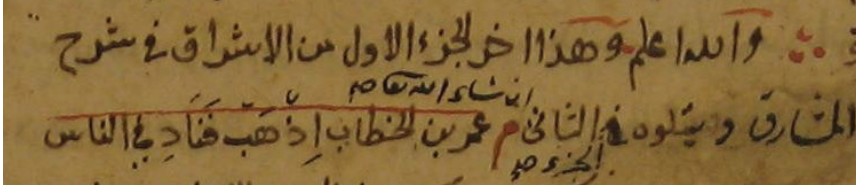 والله اعلم وهذا اخر الجزء الاول من الاشراق في شرح
ان شاء الله تعالى صح
المشارق ويتلوه في الثاني م عمر بن الخطاب اذهب فناد في الناس
الجزء صح